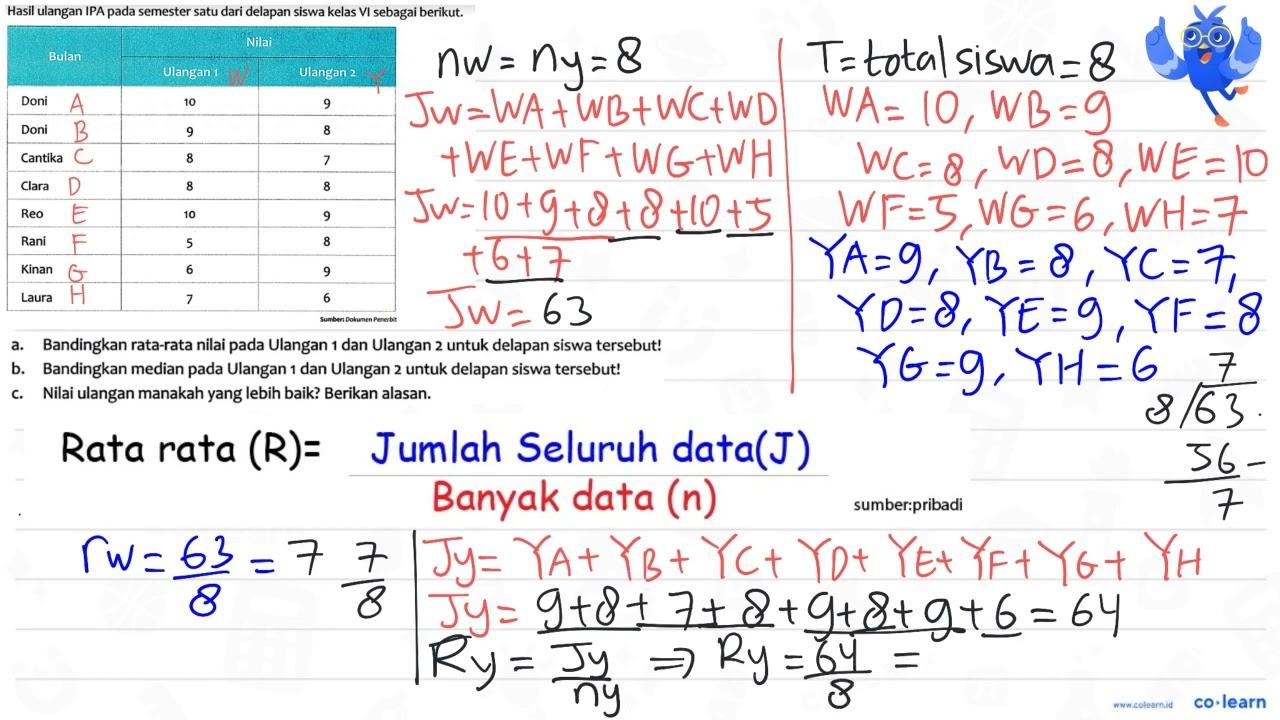 Hasil ulangan IPA pada semester satu dari delapan siswa kelas VI sebagai berikut.
Bulan Nilai
Ulangan 1 W Ulangan 2 Y
Doni A 10 9
Doni B 9 8
Cantika C 8 7
Clara D 8 8
Reo E 10 9
Rani F 5 8
Kinan G 6 9
Laura H 7 6
Sumber: Dokumen Penerbit
nw = ny = 8
Jw = WA + WB + WC + WD
+ WE + WF + WG + WH
Jw = 10 + 9 + 8 + 8 + 10 + 5
+ 6 + 7
Jw = 63
T = total siswa = 8
WA = 10, WB = 9
WC = 8, WD = 8, WE = 10
WF = 5, WG = 6, WH = 7
YA = 9, YB = 8, YC = 7,
YD = 8, YE = 9, YF = 8
YG = 9, YH = 6
7
8/63
56 -
7
a. Bandingkan rata-rata nilai pada Ulangan 1 dan Ulangan 2 untuk delapan siswa tersebut!
b. Bandingkan median pada Ulangan 1 dan Ulangan 2 untuk delapan siswa tersebut!
c. Nilai ulangan manakah yang lebih baik? Berikan alasan.
Rata rata (R)= Jumlah Seluruh data(J)
Banyak data (n)
sumber:pribadi
rw = 63/8 = 7 7/8
Jy = YA + YB + YC + YD + YE + YF + YG + YH
Jy = 9 + 8 + 7 + 8 + 9 + 8 + 9 + 6 = 64
Ry = Jy/ny ⇒ Ry = 64/8 =
www.colearn.id co·learn